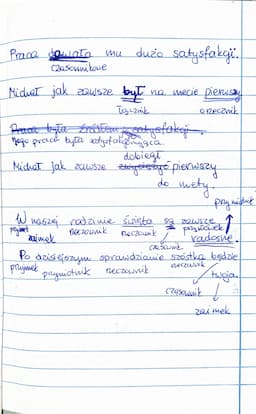 Praca dawała mu dużo satysfakcji.
czasownikowe
Michał jak zawsze był na mecie pierwszy
łącznik orzecznik
Praca była źródłem satysfakcji.
Jego praca była satysfakcjonująca.
dobiegł
Michał jak zawsze pierwszy
do mety.
przymiotnik
W naszej rodzinie święta są zawsze
przyimek rzeczownik rzeczownik przysłówek
zaimek czasownik radosne.
Po dzisiejszym sprawdzianie szóstka będzie
przyimek przymiotnik rzeczownik rzeczownik twoja.
czasownik
zaimek